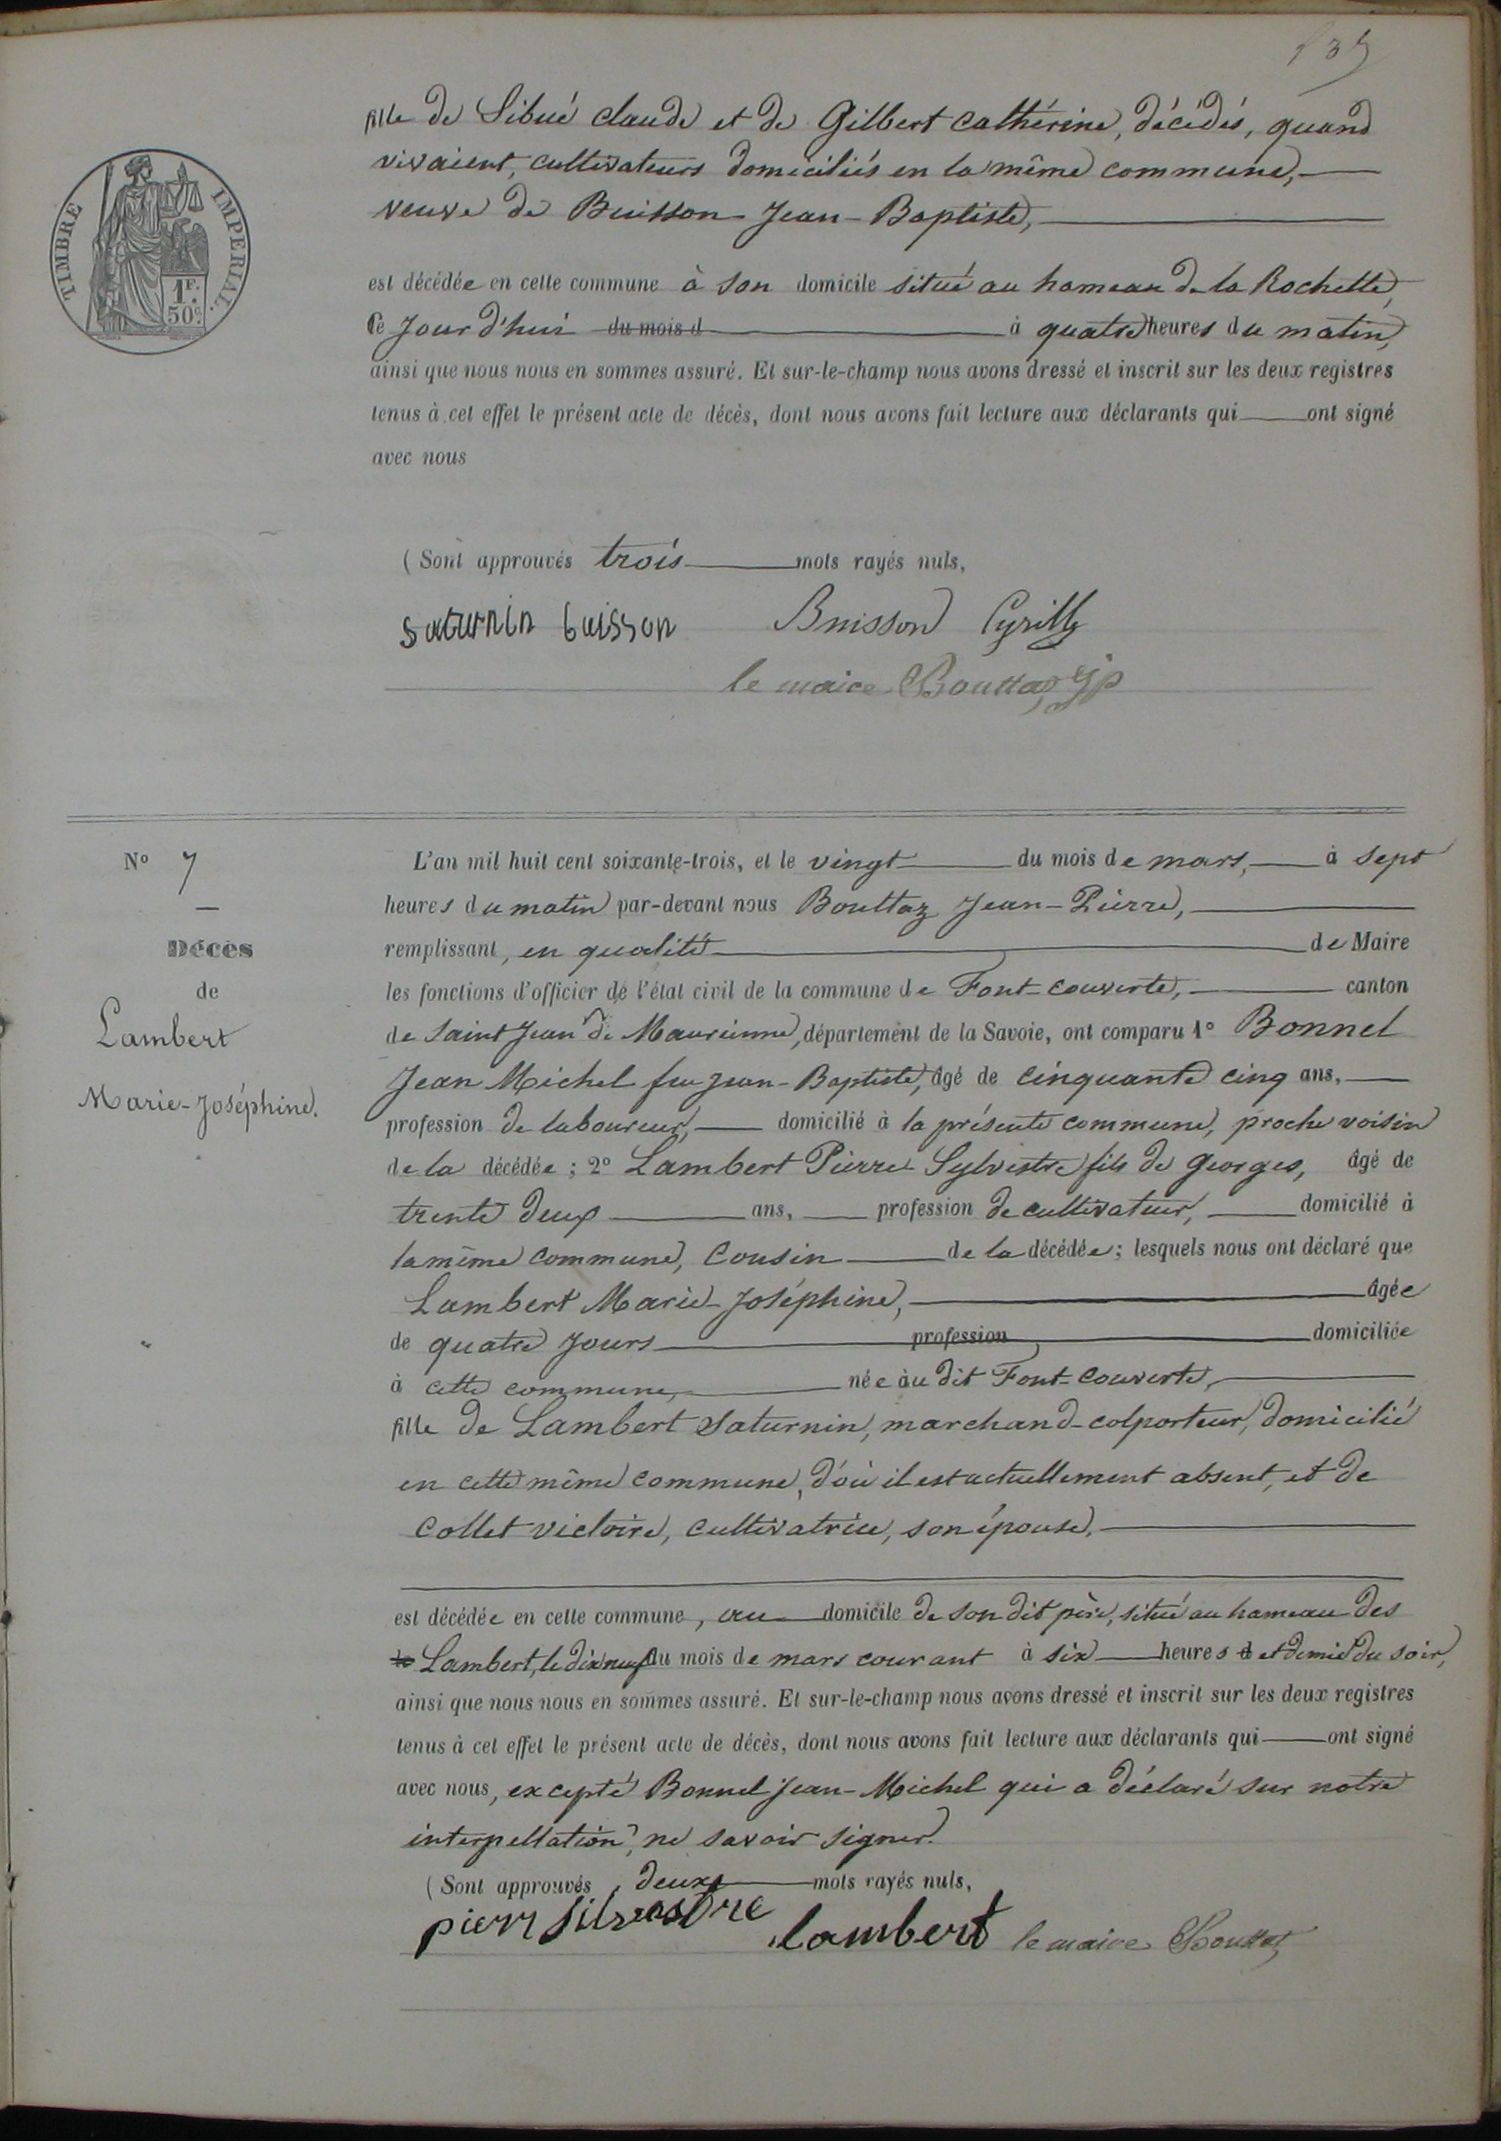 135
fille de Sibué claude et de Gilbert cathérine, décédés, quand
vivaient, cultivateurs domiciliés en la même commune,
veuve de Buisson Jean-Baptiste,
TIMBRE IMPERIAL
1F.
50c.
est décédée en cette commune à son domicile situé au hameau de la Rochette,
Ce Jourd'hui du mois d à quatre heures du matin,
ainsi que nous nous en sommes assuré. Et sur-le-champ nous avons dressé et inscrit sur les deux registres
tenus à cet effet le présent acte de décès, dont nous avons fait lecture aux déclarants qui ont signé
avec nous
(Sont approuvés trois mots rayés nuls,
saturnin buisson Buisson Cyrille
le maire Bouttaz JP
N° 7
Décès
de
Lambert
Marie-Joséphine.
L'an mil huit cent soixante-trois, et le vingt du mois de mars, à sept
heures du matin par-devant nous Bouttaz Jean-Pierre,
remplissant, en qualité de Maire
les fonctions d'officier de l'état civil de la commune de Font-couverte, canton
de Saint Jean de Maurienne, département de la Savoie, ont comparu 1° Bonnel
Jean Michel feu Jean-Baptiste, âgé de cinquante cinq ans,
profession de laboureur, domicilié à la présente commune, proche voisin
de la décédée; 2° Lambert Pierre Sylvestre fils de Georges, âgé de
trente deux ans, profession de cultivateur, domicilié à
la même commune, Cousin de la décédée; lesquels nous ont déclaré que
Lambert Marie-Joséphine, âgée
de quatre Jours profession domiciliée
à cette commune, née àu dit Font-couverte,
fille de Lambert Saturnin, marchand-colporteur, domicilié
en cette même commune, d'où il est actuellement absent, et de
Collet victoire, cultivatrice, son épouse,
est décédée en cette commune, au domicile de son dit père, situé au hameau des
Lambert, le dix neuf du mois de mars courant à six heures d et demie du soir,
ainsi que nous nous en sommes assuré. Et sur-le-champ nous avons dressé et inscrit sur les deux registres
tenus à cet effet le présent acte de décès, dont nous avons fait lecture aux déclarants qui ont signé
avec nous, excepté Bonnel Jean-Michel qui a déclaré sur notre
interpellation, ne savoir signer.
(Sont approuvés deux mots rayés nuls,
pierr silvestre lambert le maire Bouttaz